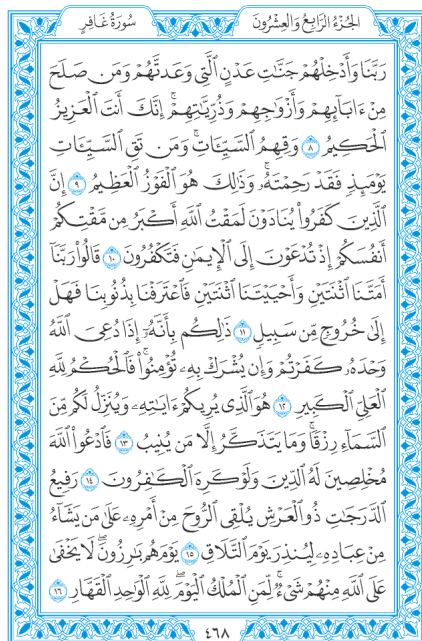 سُورَةُ غَافِرٍ الجُزْءُ الرَّابِعُ وَالعِشْرُونَ
رَبَّنَا وَأَدْخِلْهُمْ جَنَّٰتِ عَدْنٍ ٱلَّتِى وَعَدتَّهُمْ وَمَن صَلَحَ
مِنْ ءَابَآئِهِمْ وَأَزْوَٰجِهِمْ وَذُرِّيَّٰتِهِمْۚ إِنَّكَ أَنتَ ٱلْعَزِيزُ
ٱلْحَكِيمُ ٨ وَقِهِمُ ٱلسَّيِّـَٔاتِۚ وَمَن تَقِ ٱلسَّيِّـَٔاتِ
يَوْمَئِذٍ فَقَدْ رَحِمْتَهُۥۚ وَذَٰلِكَ هُوَ ٱلْفَوْزُ ٱلْعَظِيمُ ٩ إِنَّ
ٱلَّذِينَ كَفَرُوا۟ يُنَادَوْنَ لَمَقْتُ ٱللَّهِ أَكْبَرُ مِن مَّقْتِكُمْ
أَنفُسَكُمْ إِذْ تُدْعَوْنَ إِلَى ٱلْإِيمَٰنِ فَتَكْفُرُونَ ١٠ قَالُوا۟ رَبَّنَآ
أَمَتَّنَا ٱثْنَتَيْنِ وَأَحْيَيْتَنَا ٱثْنَتَيْنِ فَٱعْتَرَفْنَا بِذُنُوبِنَا فَهَلْ
إِلَىٰ خُرُوجٍ مِّن سَبِيلٍ ١١ ذَٰلِكُم بِأَنَّهُۥٓ إِذَا دُعِىَ ٱللَّهُ
وَحْدَهُۥ كَفَرْتُمْ وَإِن يُشْرَكْ بِهِۦ تُؤْمِنُوا۟ۚ فَٱلْحُكْمُ لِلَّهِ
ٱلْعَلِىِّ ٱلْكَبِيرِ ١٢ هُوَ ٱلَّذِى يُرِيكُمْ ءَايَٰتِهِۦ وَيُنَزِّلُ لَكُم مِّنَ
ٱلسَّمَآءِ رِزْقًاۚ وَمَا يَتَذَكَّرُ إِلَّا مَن يُنِيبُ ١٣ فَٱدْعُوا۟ ٱللَّهَ
مُخْلِصِينَ لَهُ ٱلدِّينَ وَلَوْ كَرِهَ ٱلْكَٰفِرُونَ ١٤ رَفِيعُ
ٱلدَّرَجَٰتِ ذُو ٱلْعَرْشِ يُلْقِى ٱلرُّوحَ مِنْ أَمْرِهِۦ عَلَىٰ مَن يَشَآءُ
مِنْ عِبَادِهِۦ لِيُنذِرَ يَوْمَ ٱلتَّلَاقِ ١٥ يَوْمَ هُم بَٰرِزُونَۖ لَا يَخْفَىٰ
عَلَى ٱللَّهِ مِنْهُمْ شَىْءٌۚ لِّمَنِ ٱلْمُلْكُ ٱلْيَوْمَۖ لِلَّهِ ٱلْوَٰحِدِ ٱلْقَهَّارِ ١٦
٤٦٨